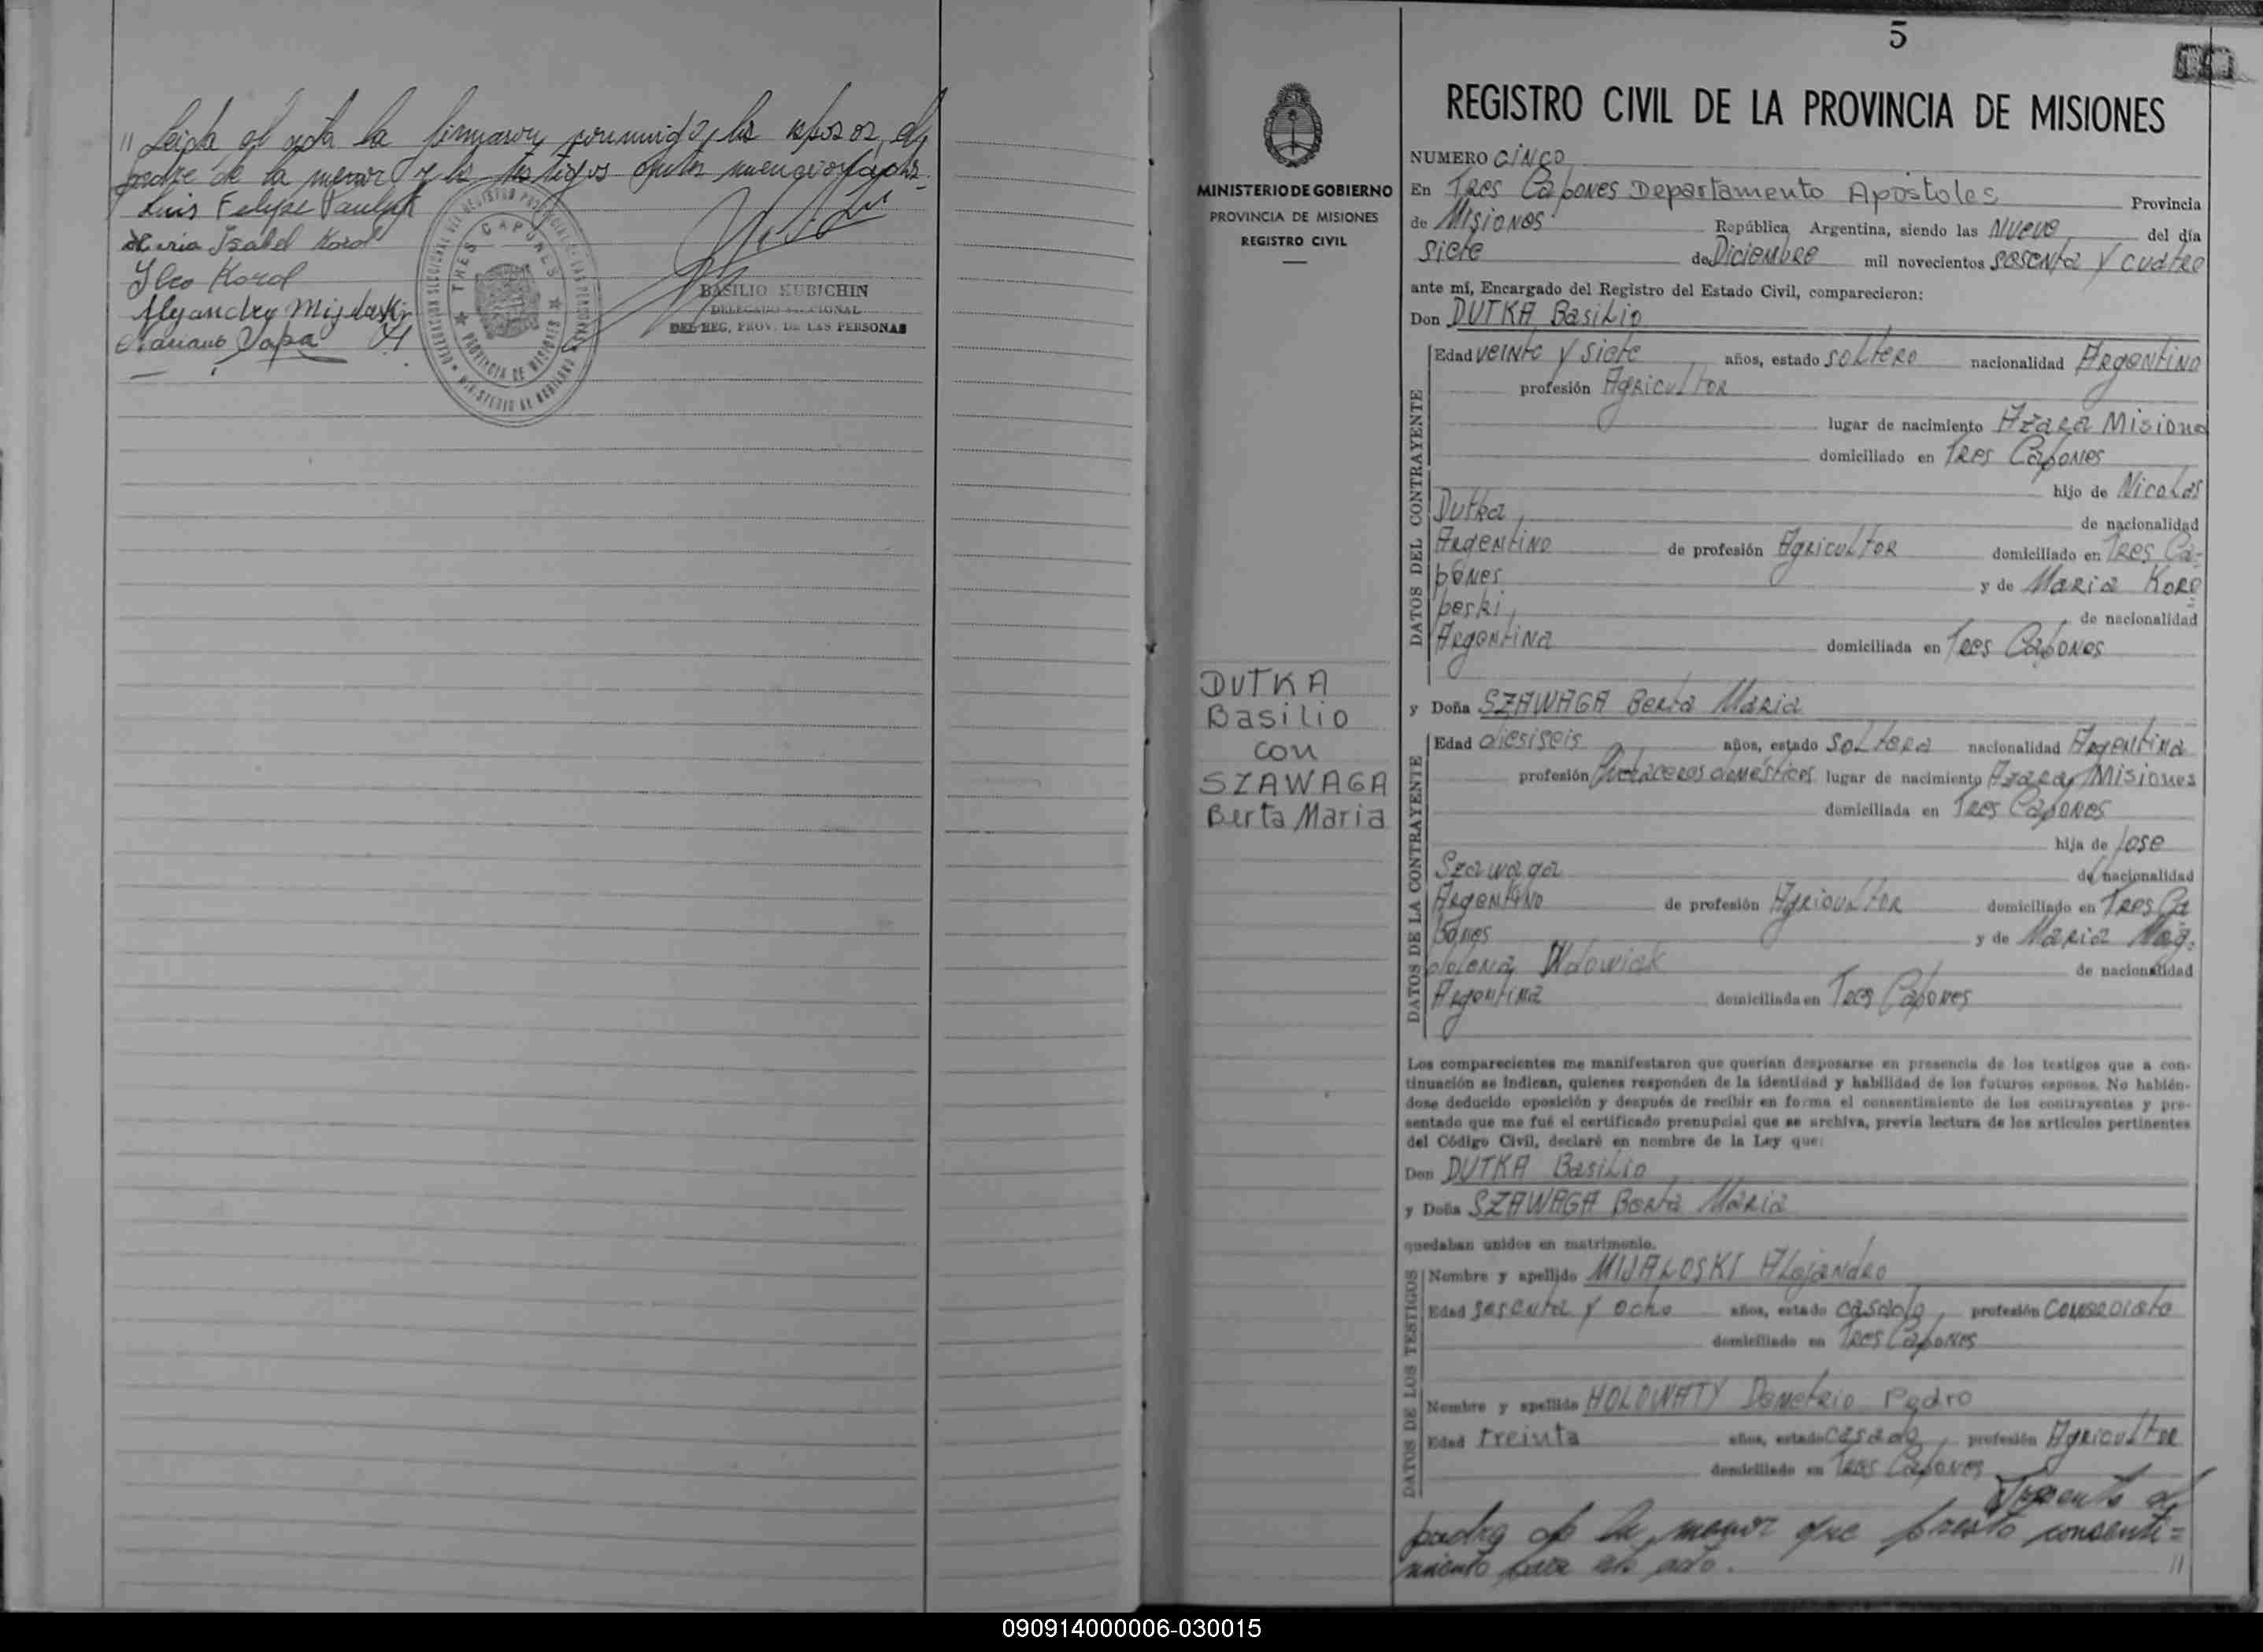 // Leída el acta la firmaron conmigo, los esposos, el
padre de la menor y los testigos
Luis Felipe Paulak
Maria Isabel Korol
Ilco Korol
Alejandro Mijaloski
Mariano Vapa
BASILIO KUBICHIN
DELEGADO SECCIONAL
DEL REG. PROV. DE LAS PERSONAS
TRES CAPONES
PROVINCIA DE MISIONES
5
REGISTRO CIVIL DE LA PROVINCIA DE MISIONES
MINISTERIO DE GOBIERNO
PROVINCIA DE MISIONES
REGISTRO CIVIL
DUTKA
Basilio
con
SZAWAGA
Berta Maria
NUMERO CINCO
En Tres Capones Departamento Apostoles Provincia
de Misiones República Argentina, siendo las Nueve del día
siete de Diciembre mil novecientos sesenta y cuatro
ante mí, Encargado del Registro del Estado Civil, comparecieron:
Don DUTKA Basilio
DATOS DEL CONTRAYENTE
Edad veinte y siete años, estado soltero nacionalidad Argentino
profesión Agricultor
lugar de nacimiento Azara Misiones
domiciliado en Tres Capones
hijo de Nicolas
Dutka, de nacionalidad
Argentino de profesión Agricultor domiciliado en Tres Ca-
pones y de Maria Koro
peski, de nacionalidad
Argentina domiciliada en Tres Capones
y Doña SZAWAGA Berta Maria
DATOS DE LA CONTRAYENTE
Edad diesiseis años, estado soltera nacionalidad Argentina
profesión Quehaceres domésticos lugar de nacimiento Azara, Misiones
domiciliada en Tres Capones
hija de Jose
Szawaga de nacionalidad
Argentino de profesión Agricultor domiciliado en Tres Ca
pones y de Maria Mag-
dolena Wdowiak de nacionalidad
Argentina domiciliada en Tres Capones
Los comparecientes me manifestaron que querían desposarse en presencia de los testigos que a con-
tinuación se indican, quienes responden de la identidad y habilidad de los futuros esposos. No habién-
dose deducido oposición y después de recibir en forma el consentimiento de los contrayentes y pre-
sentado que me fué el certificado prenupcial que se archiva, previa lectura de los artículos pertinentes
del Código Civil, declaré en nombre de la Ley que:
Don DUTKA Basilio
y Doña SZAWAGA Berta Maria
quedaban unidos en matrimonio.
DATOS DE LOS TESTIGOS
Nombre y apellido MIJALOSKI Alejandro
Edad sesenta y ocho años, estado casado, profesión comerciante
domiciliado en Tres Capones
Nombre y apellido HOLOWATY Demetrio Pedro
Edad treinta años, estado casado, profesión Agricultor
domiciliado en Tres Capones
Presente el
padre de la menor que presto consenti=
miento para este acto. //
090914000006-030015